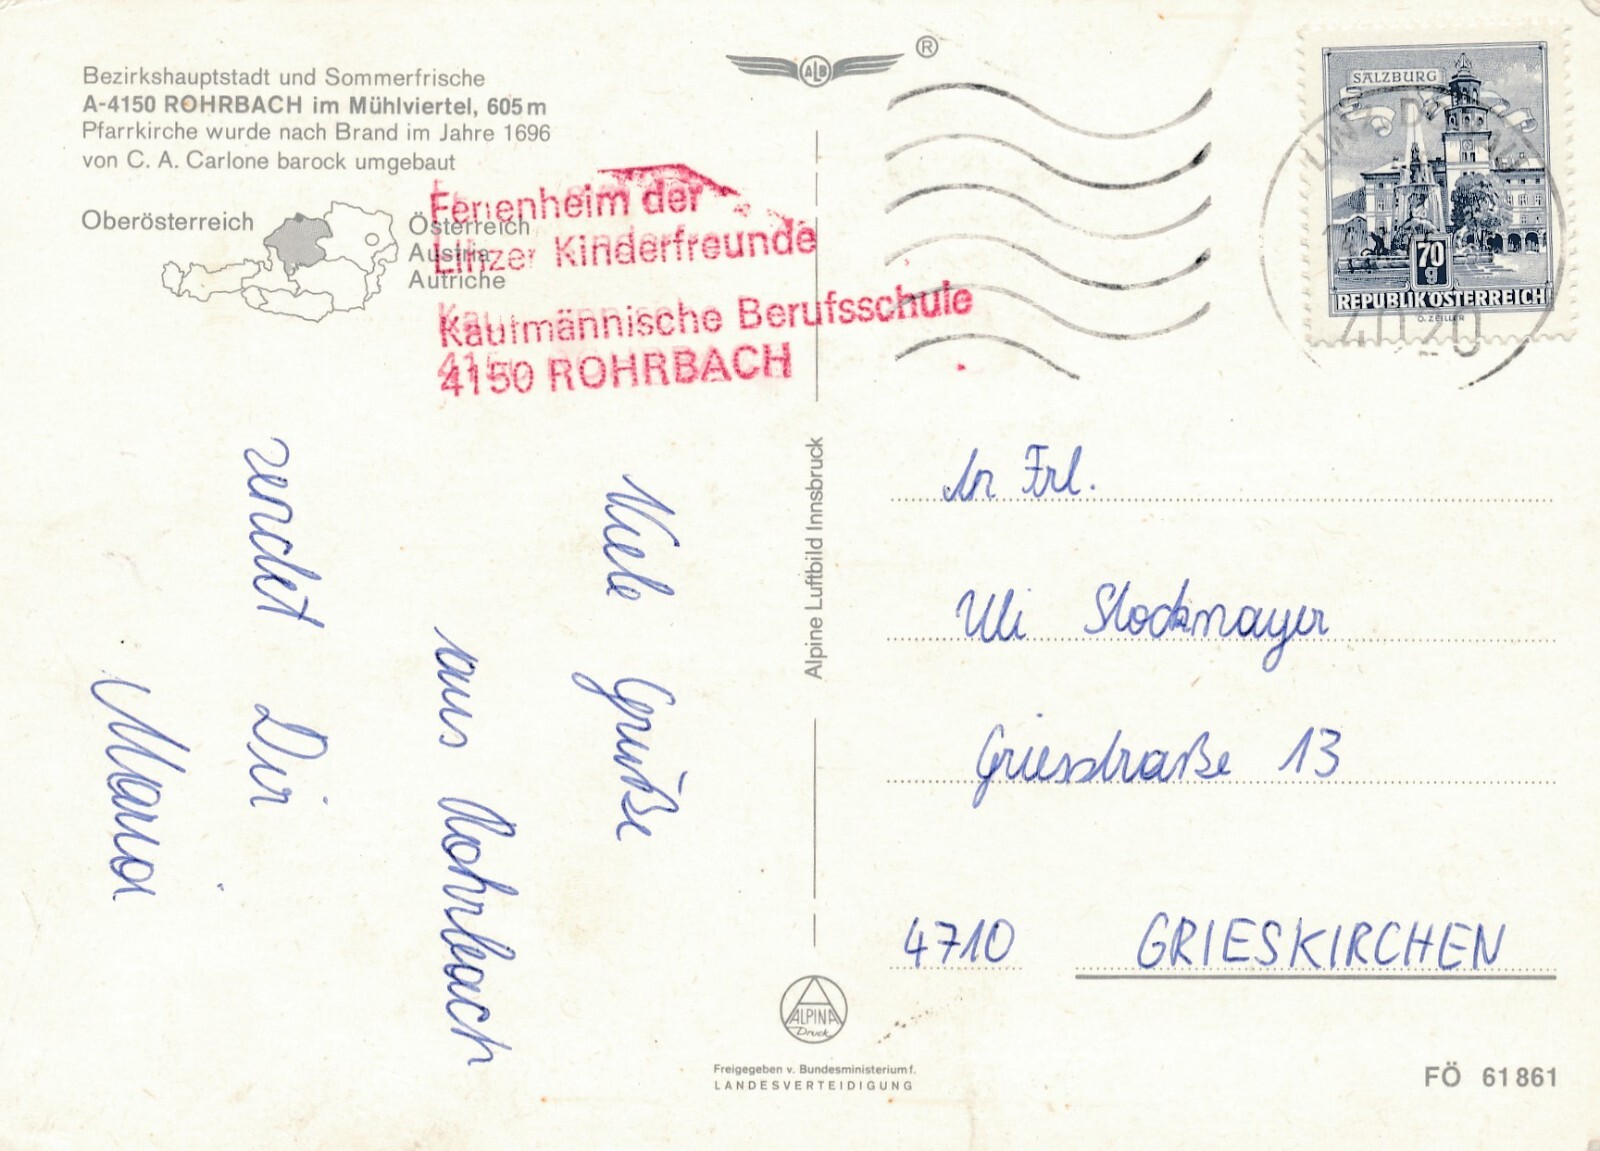 Bezirkshauptstadt und Sommerfrische
A-4150 ROHRBACH im Mühlviertel, 605 m
Pfarrkirche wurde nach Brand im Jahre 1696
von C. A. Carlone barock umgebaut
Oberösterreich
Österreich
Austria
Autriche
Ferienheim der
Linzer Kinderfreunde
Kaufmännische Berufsschule
4150 ROHRBACH
ALB
®
SALZBURG
70
g
REPUBLIK ÖSTERREICH
O. ZEILLER
4020
Viele Grüße
aus Rohrbach
sendet Dir
Maria
Alpine Luftbild Innsbruck
An Frl.
Uli Stockmayer
Griesstraße 13
4710 GRIESKIRCHEN
ALPINA
Druck
Freigegeben v. Bundesministerium f.
LANDESVERTEIDIGUNG
FÖ 61 861